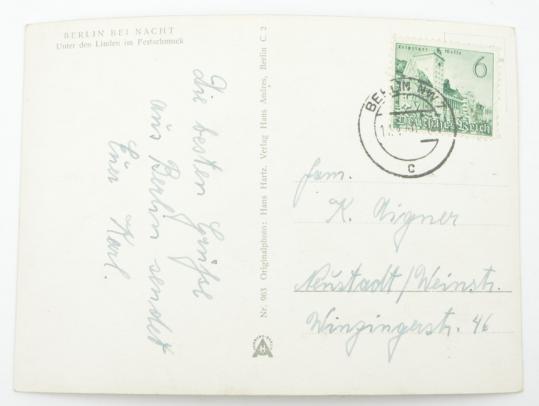 BERLIN BEI NACHT
Unter den Linden im Festschmuck
Die besten Grüße
aus Berlin sendet
Euer Karl.
Nr. 903 Originalphoto: Hans Hartz. Verlag Hans Andres, Berlin C 2
Leipziger Messe
6
Deutsches Reich
BERLIN NW 7
c
Fam.
K. Aigner
Neustadt/Weinstr.
Winzingerstr. 46